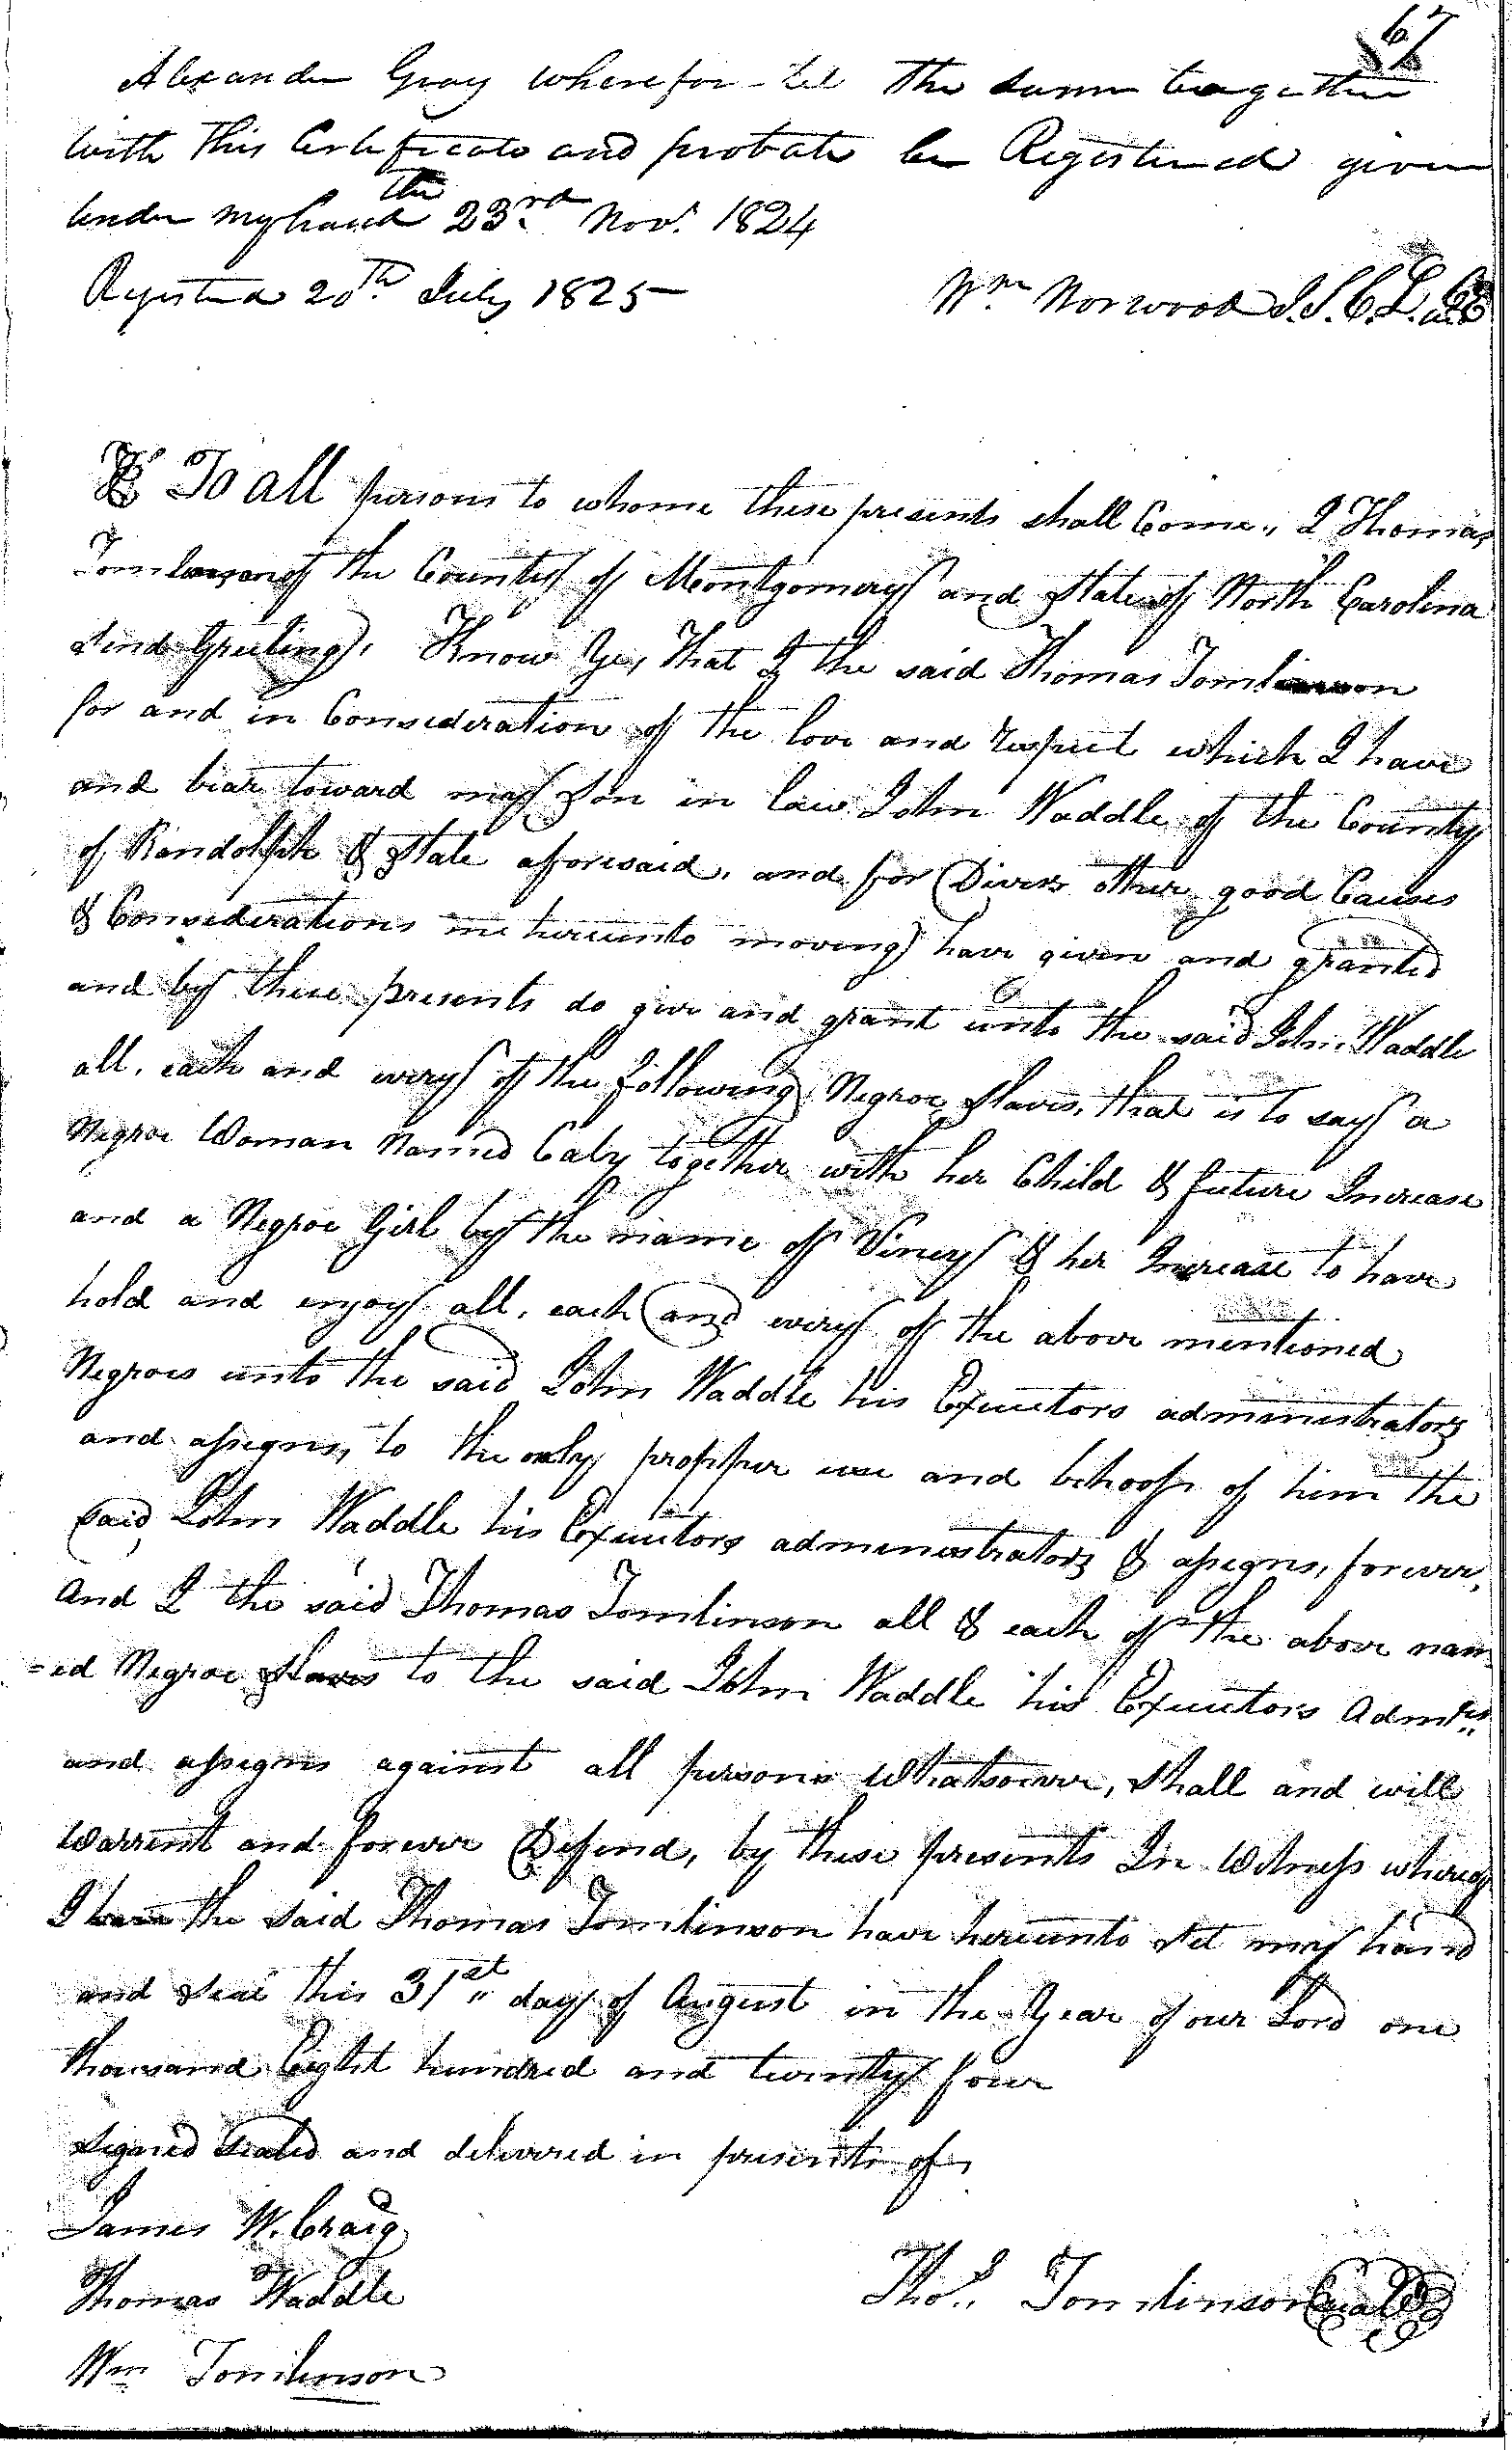 67
Alexander Gray wherefore let the same together
with this Certificate and probate be Registered given
under my hand the 23rd Novr. 1824
Registered 20th July 1825 —
Wm Norwood J.S.C.L. &E
To all persons to whome these presents shall Come, I Thomas
Tomlinson of the County of Montgomery and State of North Carolina
Send Greeting, Know Ye, That I the said Thomas Tomlinson
for and in Consideration of the love and respect which I have
and bear toward my Son in law John Waddle of the County
of Randolph & State aforesaid, and for Divers other good Causes
& Considerations me hereunto moving have given and granted
and by these presents do give and grant unto the said John Waddle
all, each and every of the following Negroe Slaves, that is to say a
Negroe Woman Named Caby together with her Child & future Increase
and a Negroe Girl by the name of Viney & her Increase to have
hold and enjoy all, each and every of the above mentioned
Negroes unto the said John Waddle his Executors administrators
and assigns, to the only propper use and behoof of him the
said John Waddle his Executors administrators & assigns, forever,
And I the said Thomas Tomlinson all & each of the above nam
=ed Negroe Slaves to the said John Waddle his Executors Admrs
and assigns against all persons Whatsoever, Shall and will
Warrent and forever Defend, by these presents In Witness whereof
I the said Thomas Tomlinson have hereunto Set my hand
and Seal this 31st day of August in the Year of our Lord one
thousand Eight hundred and twenty four
Signed Sealed and delivered in presents of,
James W. Craig
Thomas Waddle
Thos. Tomlinson Seal
Wm Tomlinson